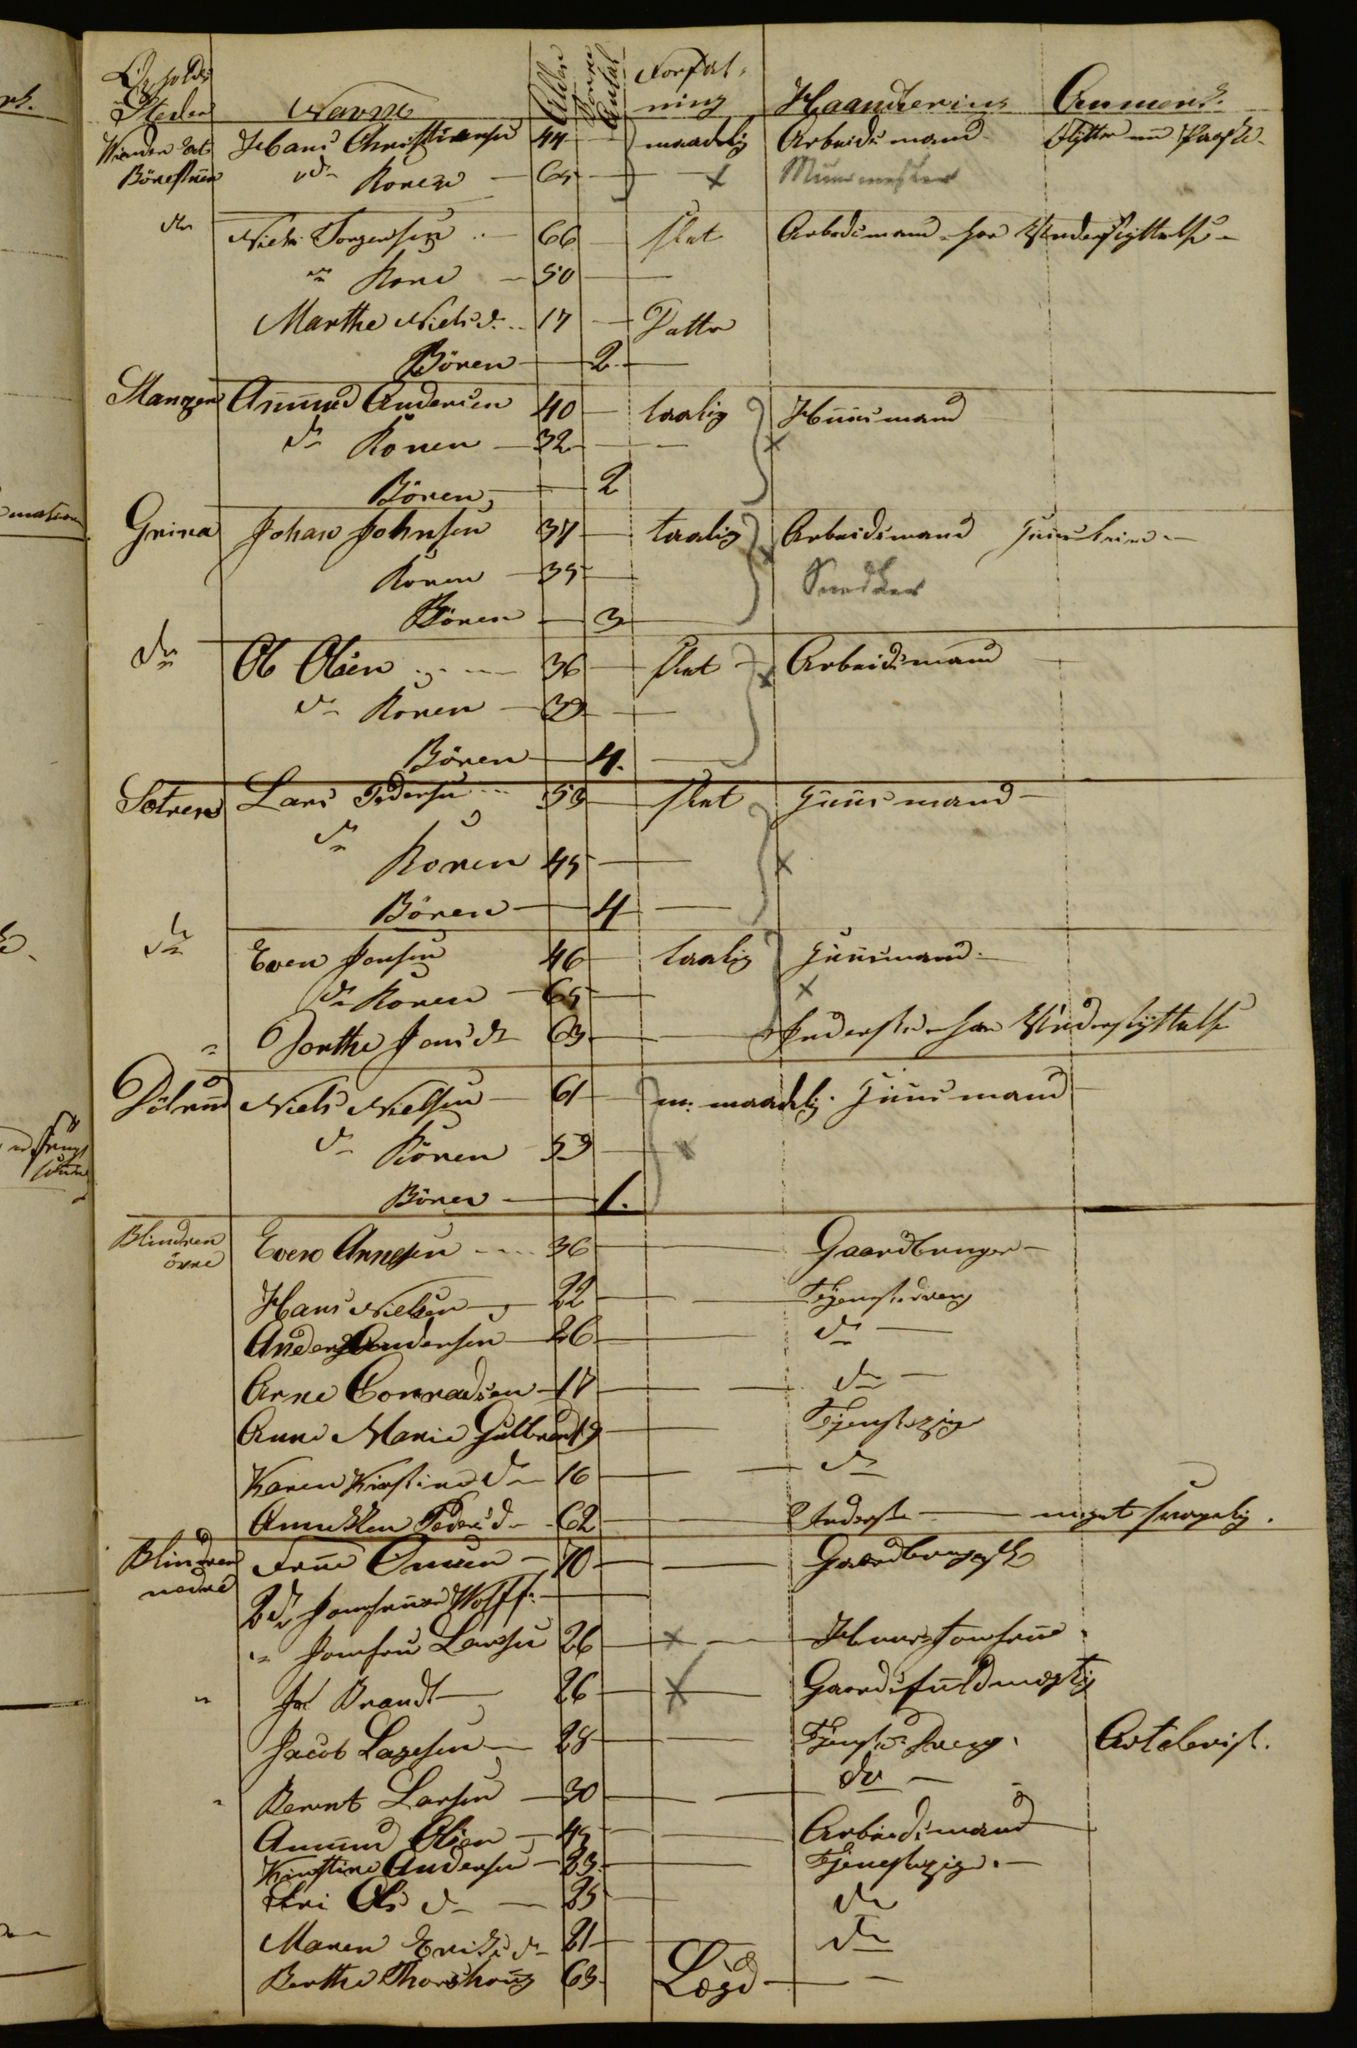 Opholds Steder Navne Alder Børne Antal Forfatning Haandtering Anmerk.
Hans Christiansen 44 maadelig Arbeidsmand flytter
Børestuen do Konen 65 Muurmester
do Niels Jorgensen 66 slet Arbeidsmand har Understyttelse
do Kone 50
Marthe Nielsd. 17 Datter
Bören 2
Stangen Asmund Andersen 40 taalig Huusmand
do Konen 32
Bören 2
Grina Johan Johnsen 37 taalig Arbeidsmand
Konen 35 Snedker
Bören 3
do Ole Olsen 36 slet Arbeidsmand
do Konen 39
Bören 4.
Sætren Lars Pedersen 53 slet Huusmand
do Konen 45
Bören 4
do Even Jensen 46 taalig Huusmand
do Konen 65
Dorthe Jensdt 63 Inderste har Understyttelse
Niels Nielsen 61 m: maadelig. Huusmand
do Konen 59
Bören 1.
Blindren övre Even Arnesen 36 Gaardbruger
Hans Nielsen 22 Tjenestedreng
Anders Andersen 26 do
Arne Conradsen 17 do
Anne Marie Gulbrand 19 Tjenestepige
Karen Kirstine do 16 do
Pedersd 62 Inderste meget svagelig.
Blindren nedre Frue 70
2de Jomfruer Wolff
" Jomfru Larsen 26 Huus Jomfrue
" Hr Brandt 26 Gaardsfuldmægtig
Jacob Lagesen 28 Tjeneste Dreng. Artelerist.
Berent Larsen 30 do
Amund Olsen 45 Arbeidsmand
Kirstine Andersen 23 Tjenestepige.
Ols d 25 do
Maren Eriksd 21 do
Berthe Thorshoug 63 Lægd